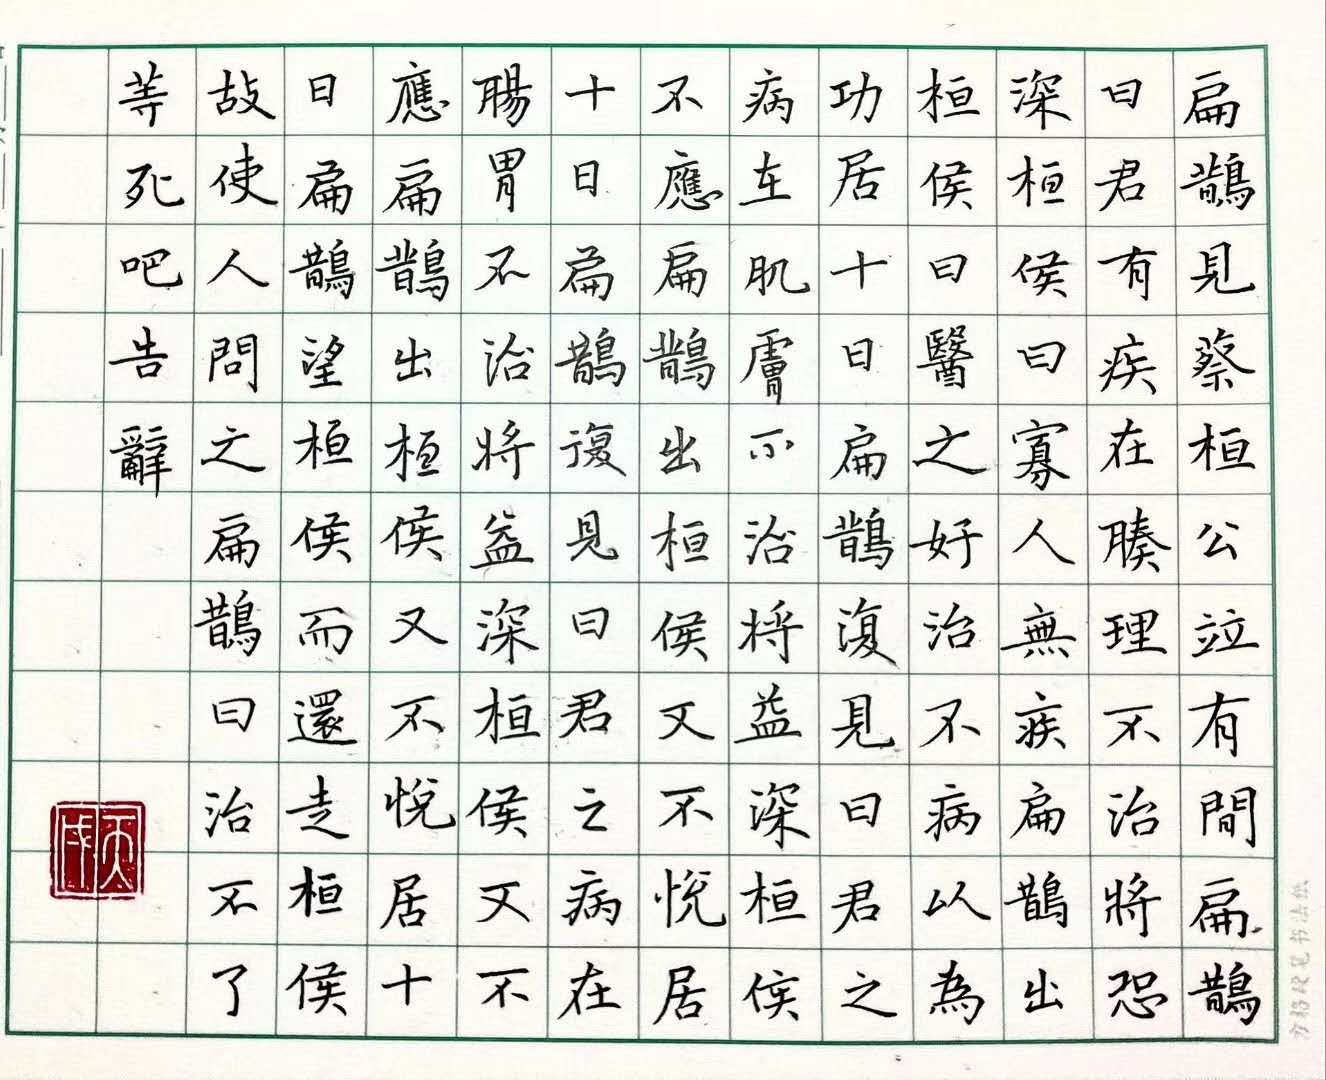 扁鵲見蔡桓公竝有間扁鵲
曰君有疾在腠理不治將恐
深桓侯曰寡人無疾扁鵲出
桓侯曰醫之好治不病以為
功居十日扁鵲復見曰君之
病在肌膚不治將益深桓侯
不應扁鵲出桓侯又不悅居
十日扁鵲復見曰君之病在
腸胃不治將益深桓侯又不
應扁鵲出桓侯又不悅居十
日扁鵲望桓侯而還走桓侯
故使人問之扁鵲曰治不了
等死吧告辭
方格硬笔书法纸